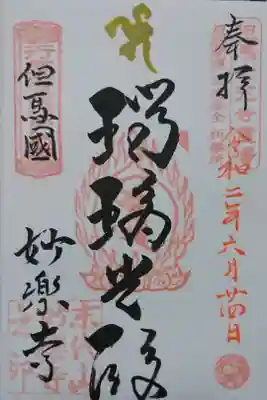 奉拝
令和二年六月廿四日
瑠璃光殿
但馬國
妙楽寺